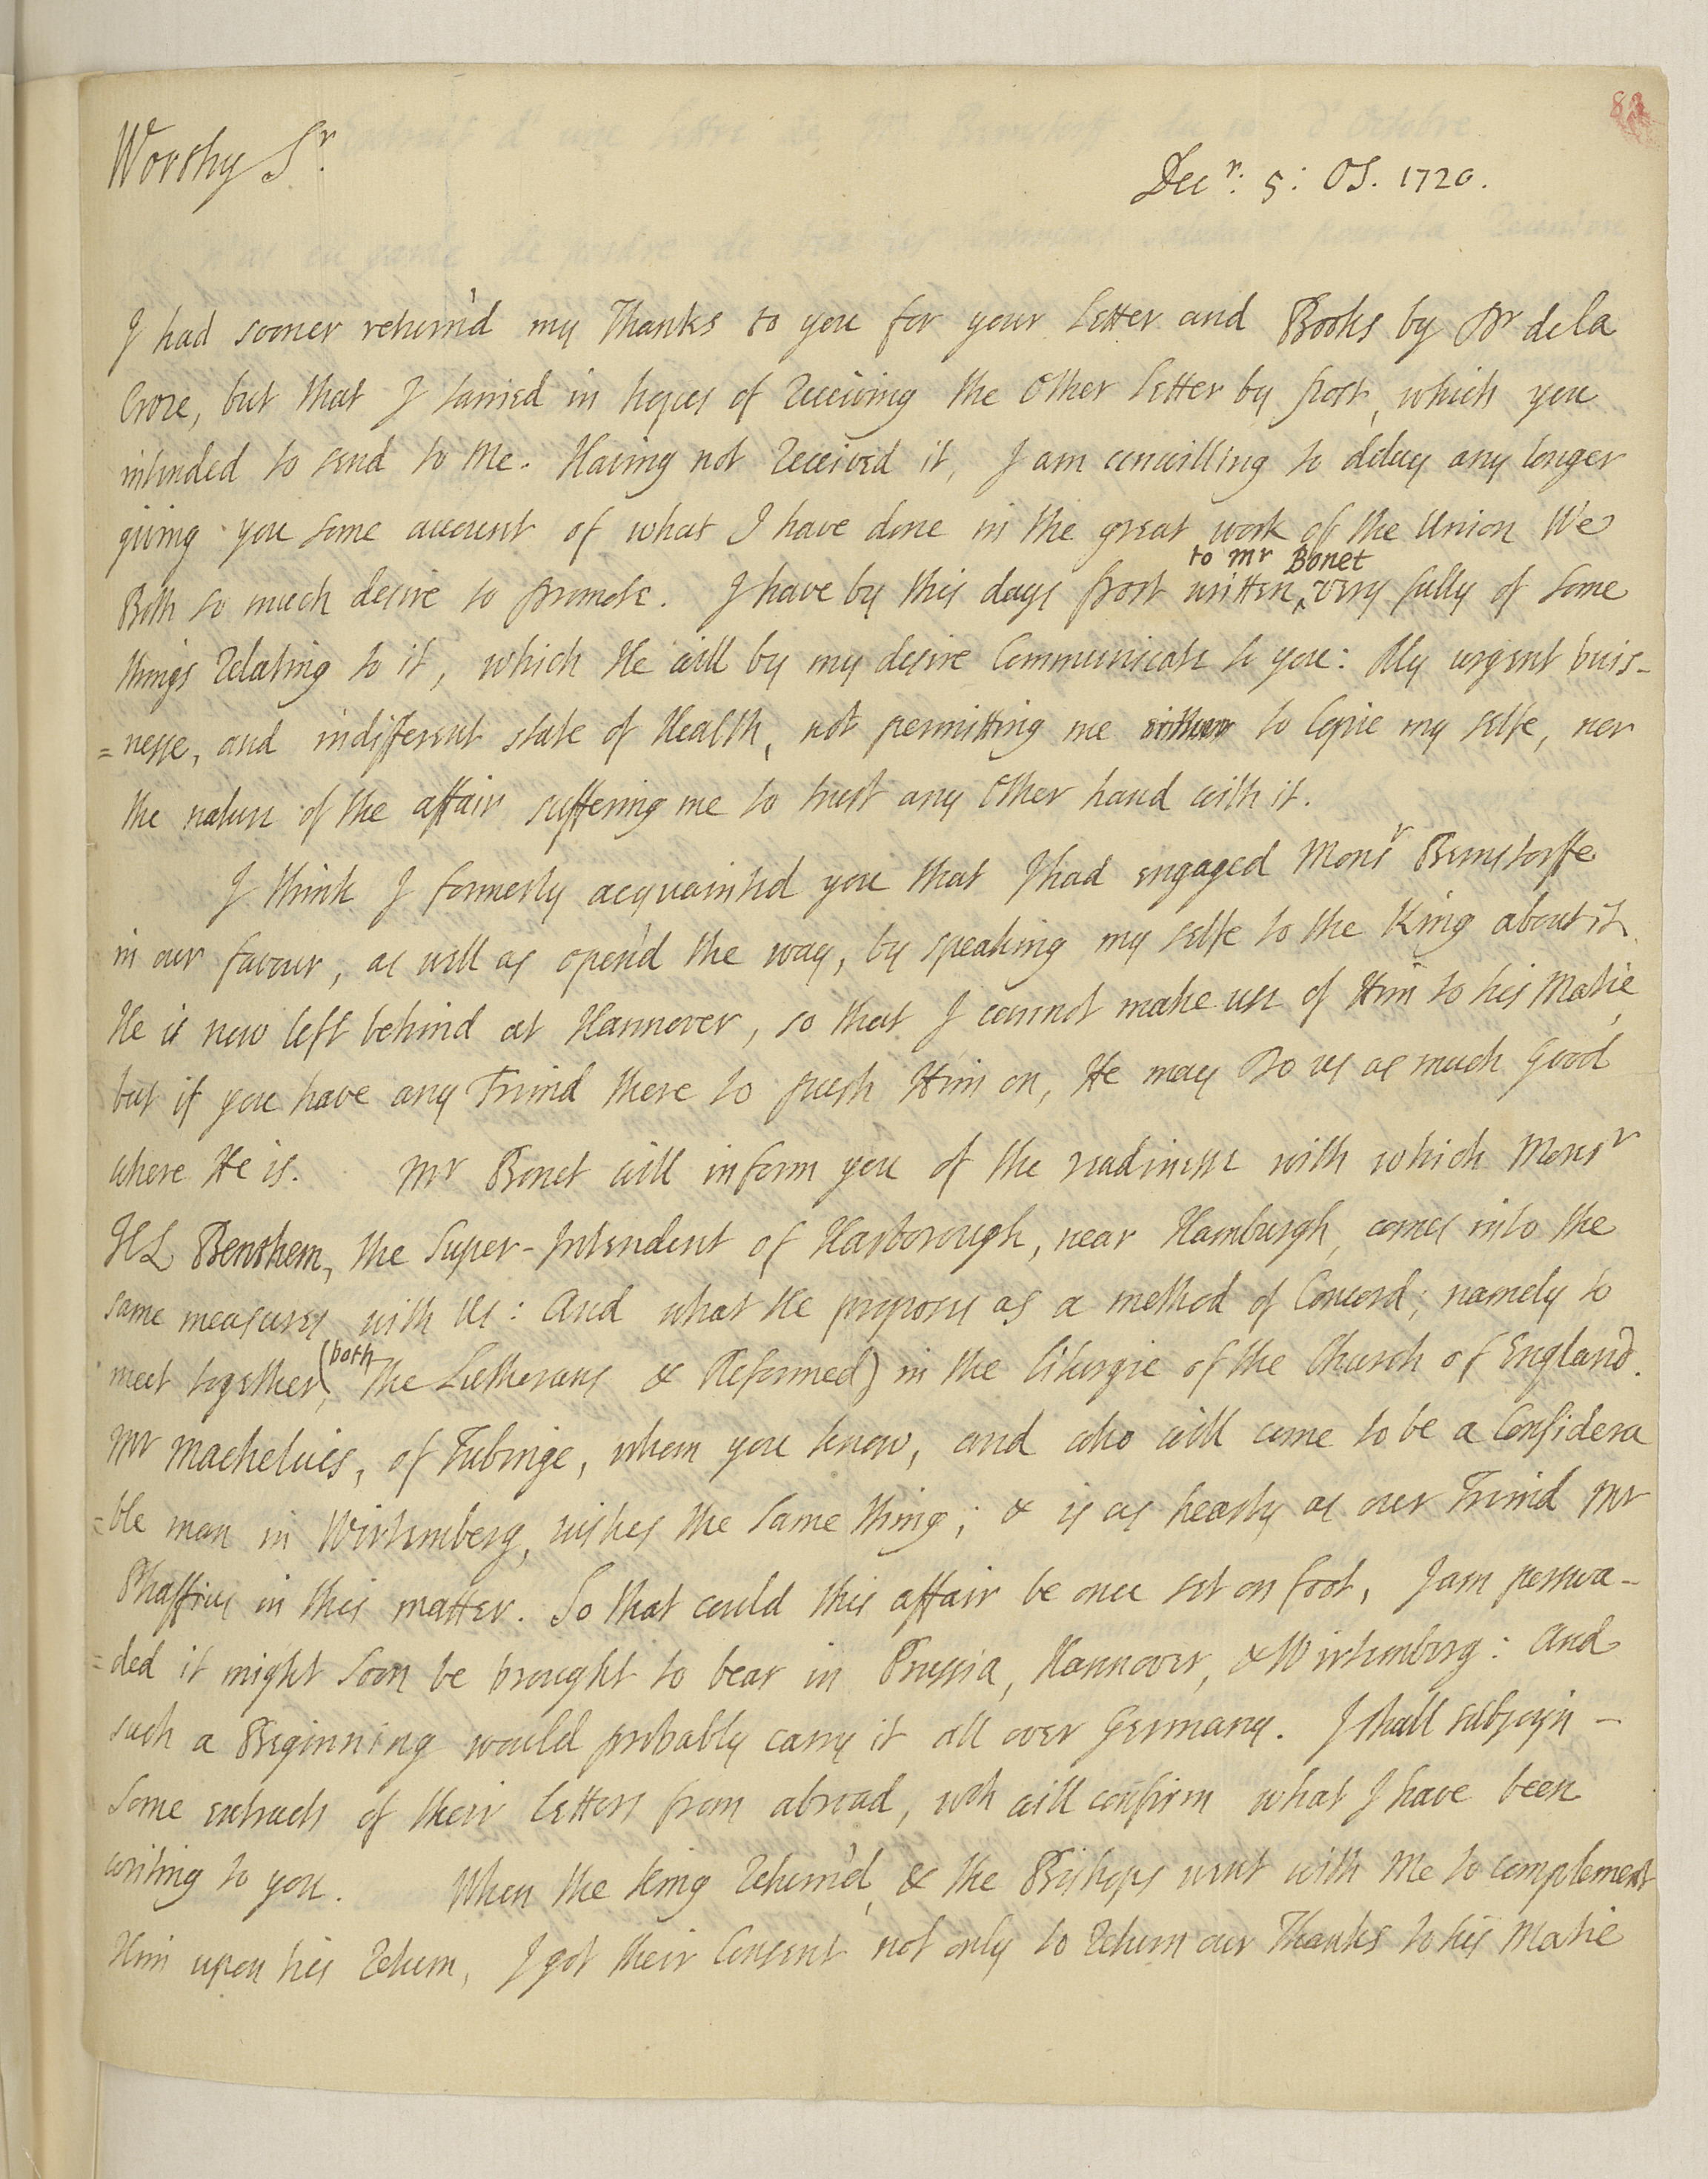 Worthy Sr.
Decr: 5: OS. 1720.
I had sooner return'd my Thanks to you for your Letter and Books by Dr de la
Croze, but that I tarried in hopes of receiving the other Letter by post, which you
intended to send to Me. Having not received it, I am unwilling to delay any longer
giving you some account of what I have done in the great work of the Union We
to Mr Bonet
Both so much desire to promote. I have by this days post written, very fully of some
things relating to it, which He will by my desire Communicate to you: My urgent buis-
=nesse, and indifferent state of Health, not permitting me either to Copie my selfe, nor
the nature of the affair suffering me to trust any other hand with it.
I think I formerly acquainted you that I had engaged Monsr Bernstorffe
in our favour, as well as open'd the way, by speaking my selfe to the King about it.
He is now left behind at Hannover, so that I cannot make use of Him to his Matie,
but if you have any Friend there to push Him on, He may Do us as much Good
where He is. Mr Bonet will inform you of the readinesse with which Monsr
HL Benthem, the Super-Intendent of Harborough, near Hamburgh, comes into the
same measures with Us: And what He proposes as a method of Concord; namely to
meet together (both the Lutherans & Reformed) in the Liturgie of the Church of England.
Mr Machelius, of Tubinge, whom you know, and who will come to be a Considera
=ble man in Wirtemberg, wishes the same thing; & is as hearty as our Friend Mr
Phaffius in this matter. So that could this affair be once set on foot, I am perswa-
=ded it might soon be brought to bear in Prussia, Hannover, & Wirtemberg: And
such a Beginning would probably carry it all over Germany. I shall subjoyn -
some extracts of their Letters from abroad, wch will confirm what I have been
writing to you. When the King return'd, & the Bishops went with Me to complement
Him upon his return, I got their Consent not only to return our Thanks to his Matie